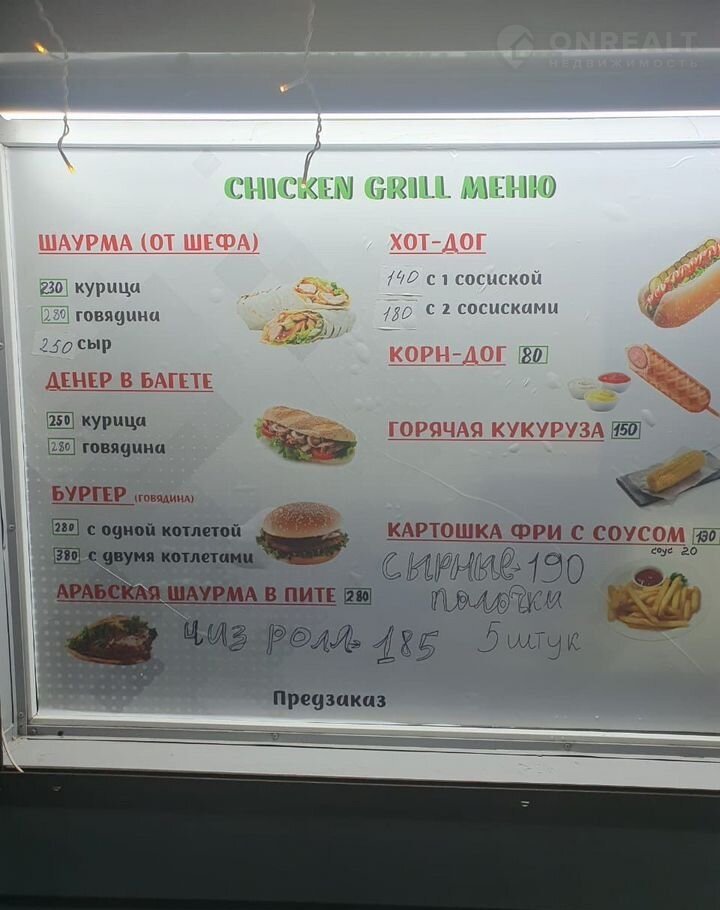 ONREALT
НЕДВИЖИМОСТЬ
CHICKEN GRILL МЕНЮ
ШАУРМА (ОТ ШЕФА)
230 курица
280 говядина
250 сыр
ДЕНЕР В БАГЕТЕ
250 курица
280 говядина
БУРГЕР (ГОВЯДИНА)
280 с одной котлетой
380 с двумя котлетами
АРАБСКАЯ ШАУРМА В ПИТЕ 280
ЧИЗ РОЛЛ 185
ХОТ-ДОГ
140 с 1 сосиской
180 с 2 сосисками
КОРН-ДОГ 80
ГОРЯЧАЯ КУКУРУЗА 150
КАРТОШКА ФРИ С СОУСОМ 130
соус 20
СЫРНЫЕ-190
ПАЛОЧКИ
5 штук
Предзаказ